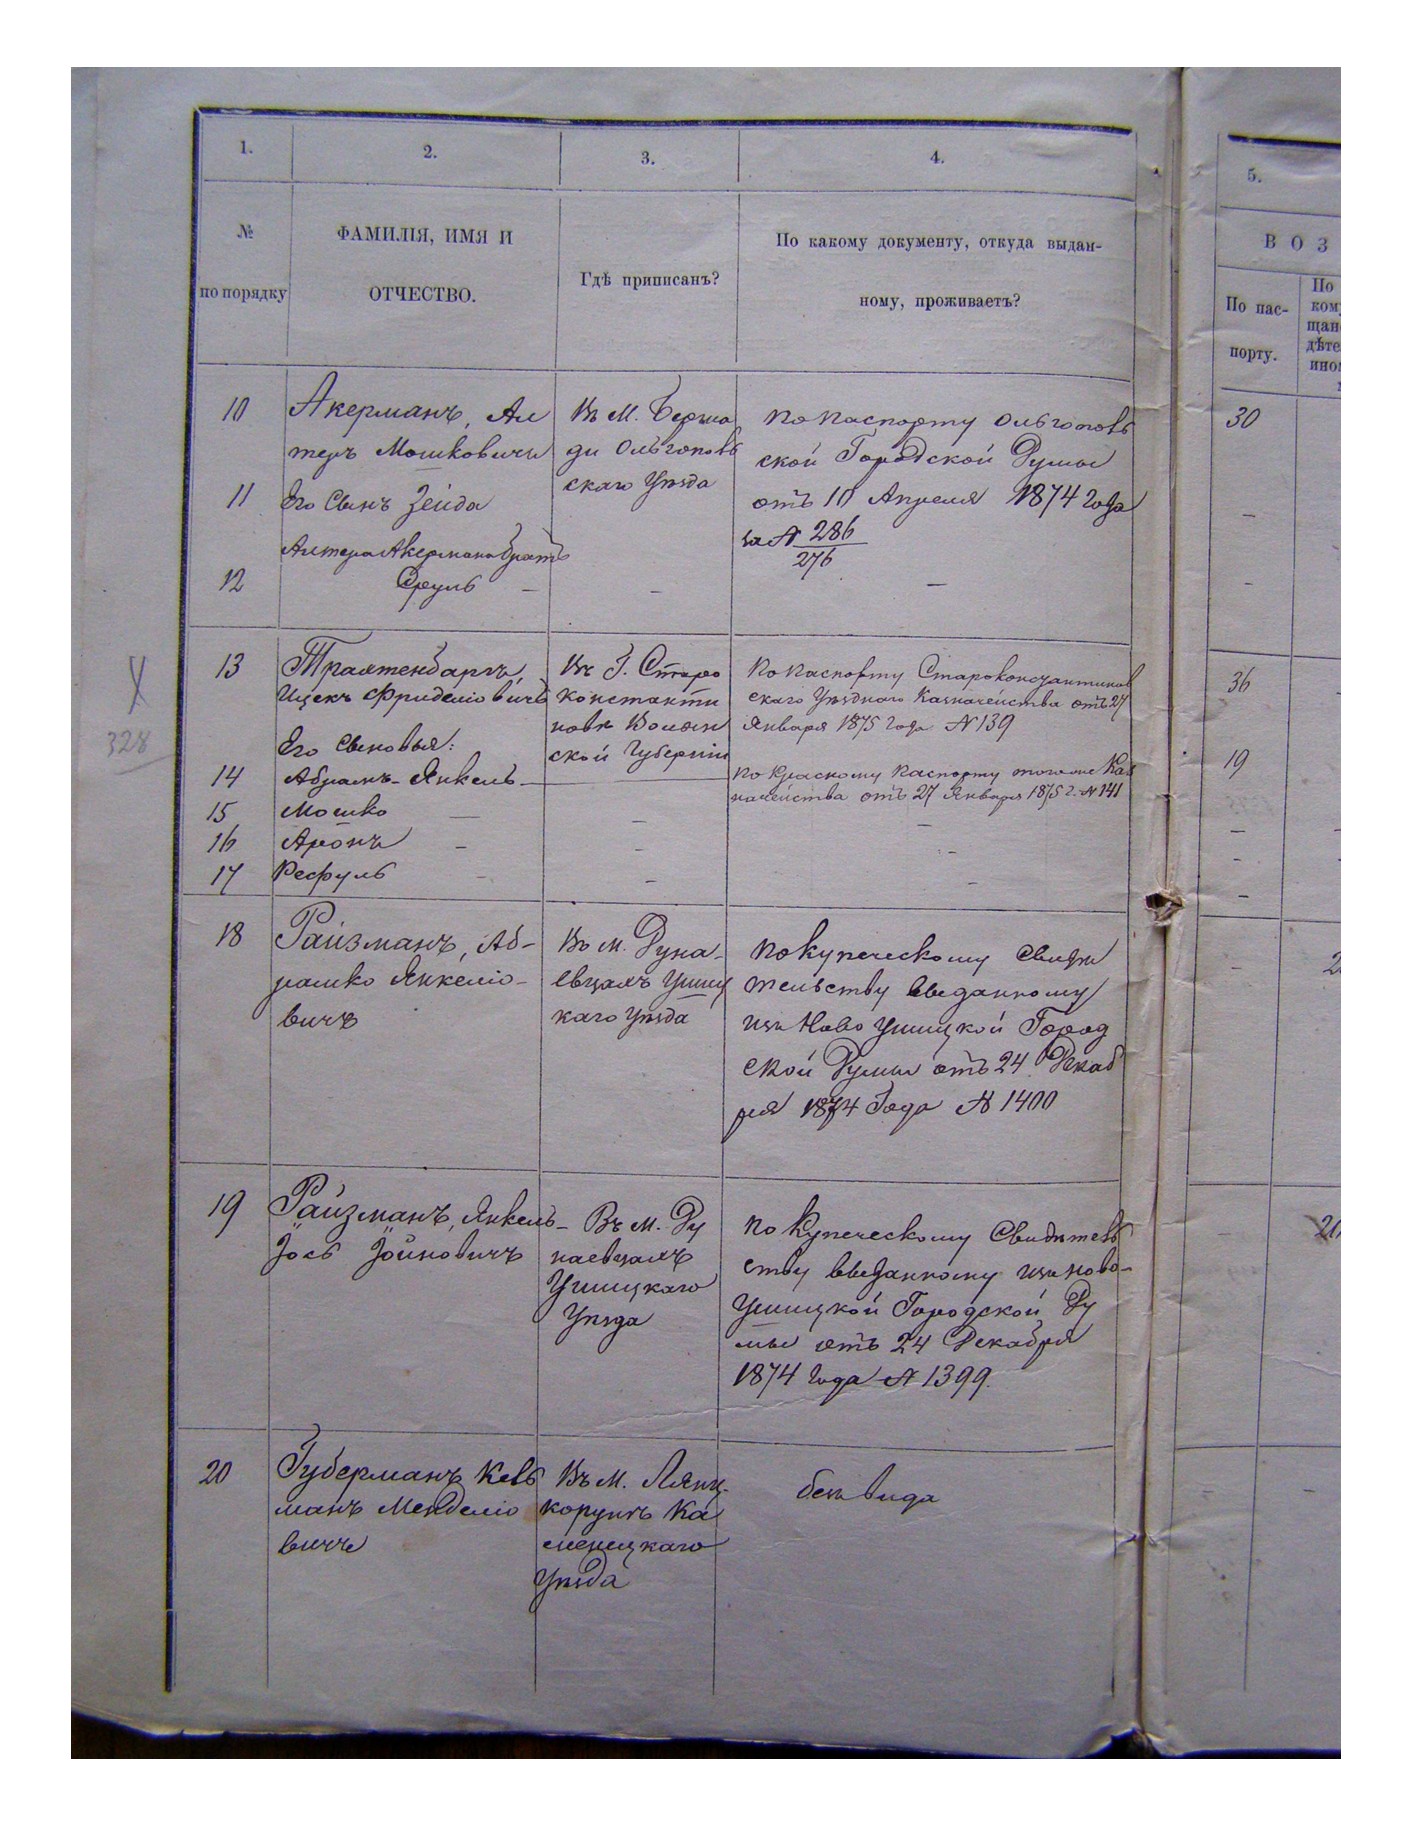 1.
2.
3.
4.
5.
№
по порядку
ФАМИЛІЯ, ИМЯ И
ОТЧЕСТВО.
Гдѣ приписанъ?
По какому документу, откуда выдан-
ному, проживаетъ?
В О З
По пас-
порту.
По
ком
щан
дѣте
ино
10
Акерманъ, Ал
теръ Мошковичъ
Въ М. Берша
ди Ольгопольск
скаго Уѣзда
по паспорту Ольгополь
ской Городской Думы
отъ 10 Апреля 1874 года
за № 286
276
30
11
Его Сынъ Зейда
12
Алтера Акермана братъ
Сруль —
13
Трахтенбаргъ,
Ицекъ Фриделіовичъ
Въ Г. Старо
константи
новѣ Волын
ской Губерніи
По паспорту Староконстантинов
скаго Уѣзднаго Казначейства отъ 27
Января 1875 года № 139
36
Его Сыновья:
14
Абрамъ-Янкель
по Красному паспорту тогоже Каз
начейства отъ 27 Января 1875 г. № 141
19
15
Мошко —
16
Аронъ -
17
Рефуль -
X
328
18
Райзманъ, Аб-
рамко Янкеліо-
вичъ
Въ м. Дуна-
евцахъ Ушиц
каго Уѣзда
по купеческому Свидѣ
тельству выданному
изъ Ново Ушицкой Город
ской Думы отъ 24 Декаб
ря 1874 Года № 1400
19
Райзманъ, Янкель-
Іось Іойновичъ
Въ м. Ду
наевцахъ
Ушицкаго
Уѣзда
по Купеческому Свидѣтель
ству выданному изъ ново-
Ушицкой Городской Ду
мы отъ 24 Декабря
1874 года № 1399.
20
Губерманъ Кель
манъ Менделіо
вичъ
Въ М. Лянц-
корунѣ Ка
менецкаго
Уѣзда
безъ вида